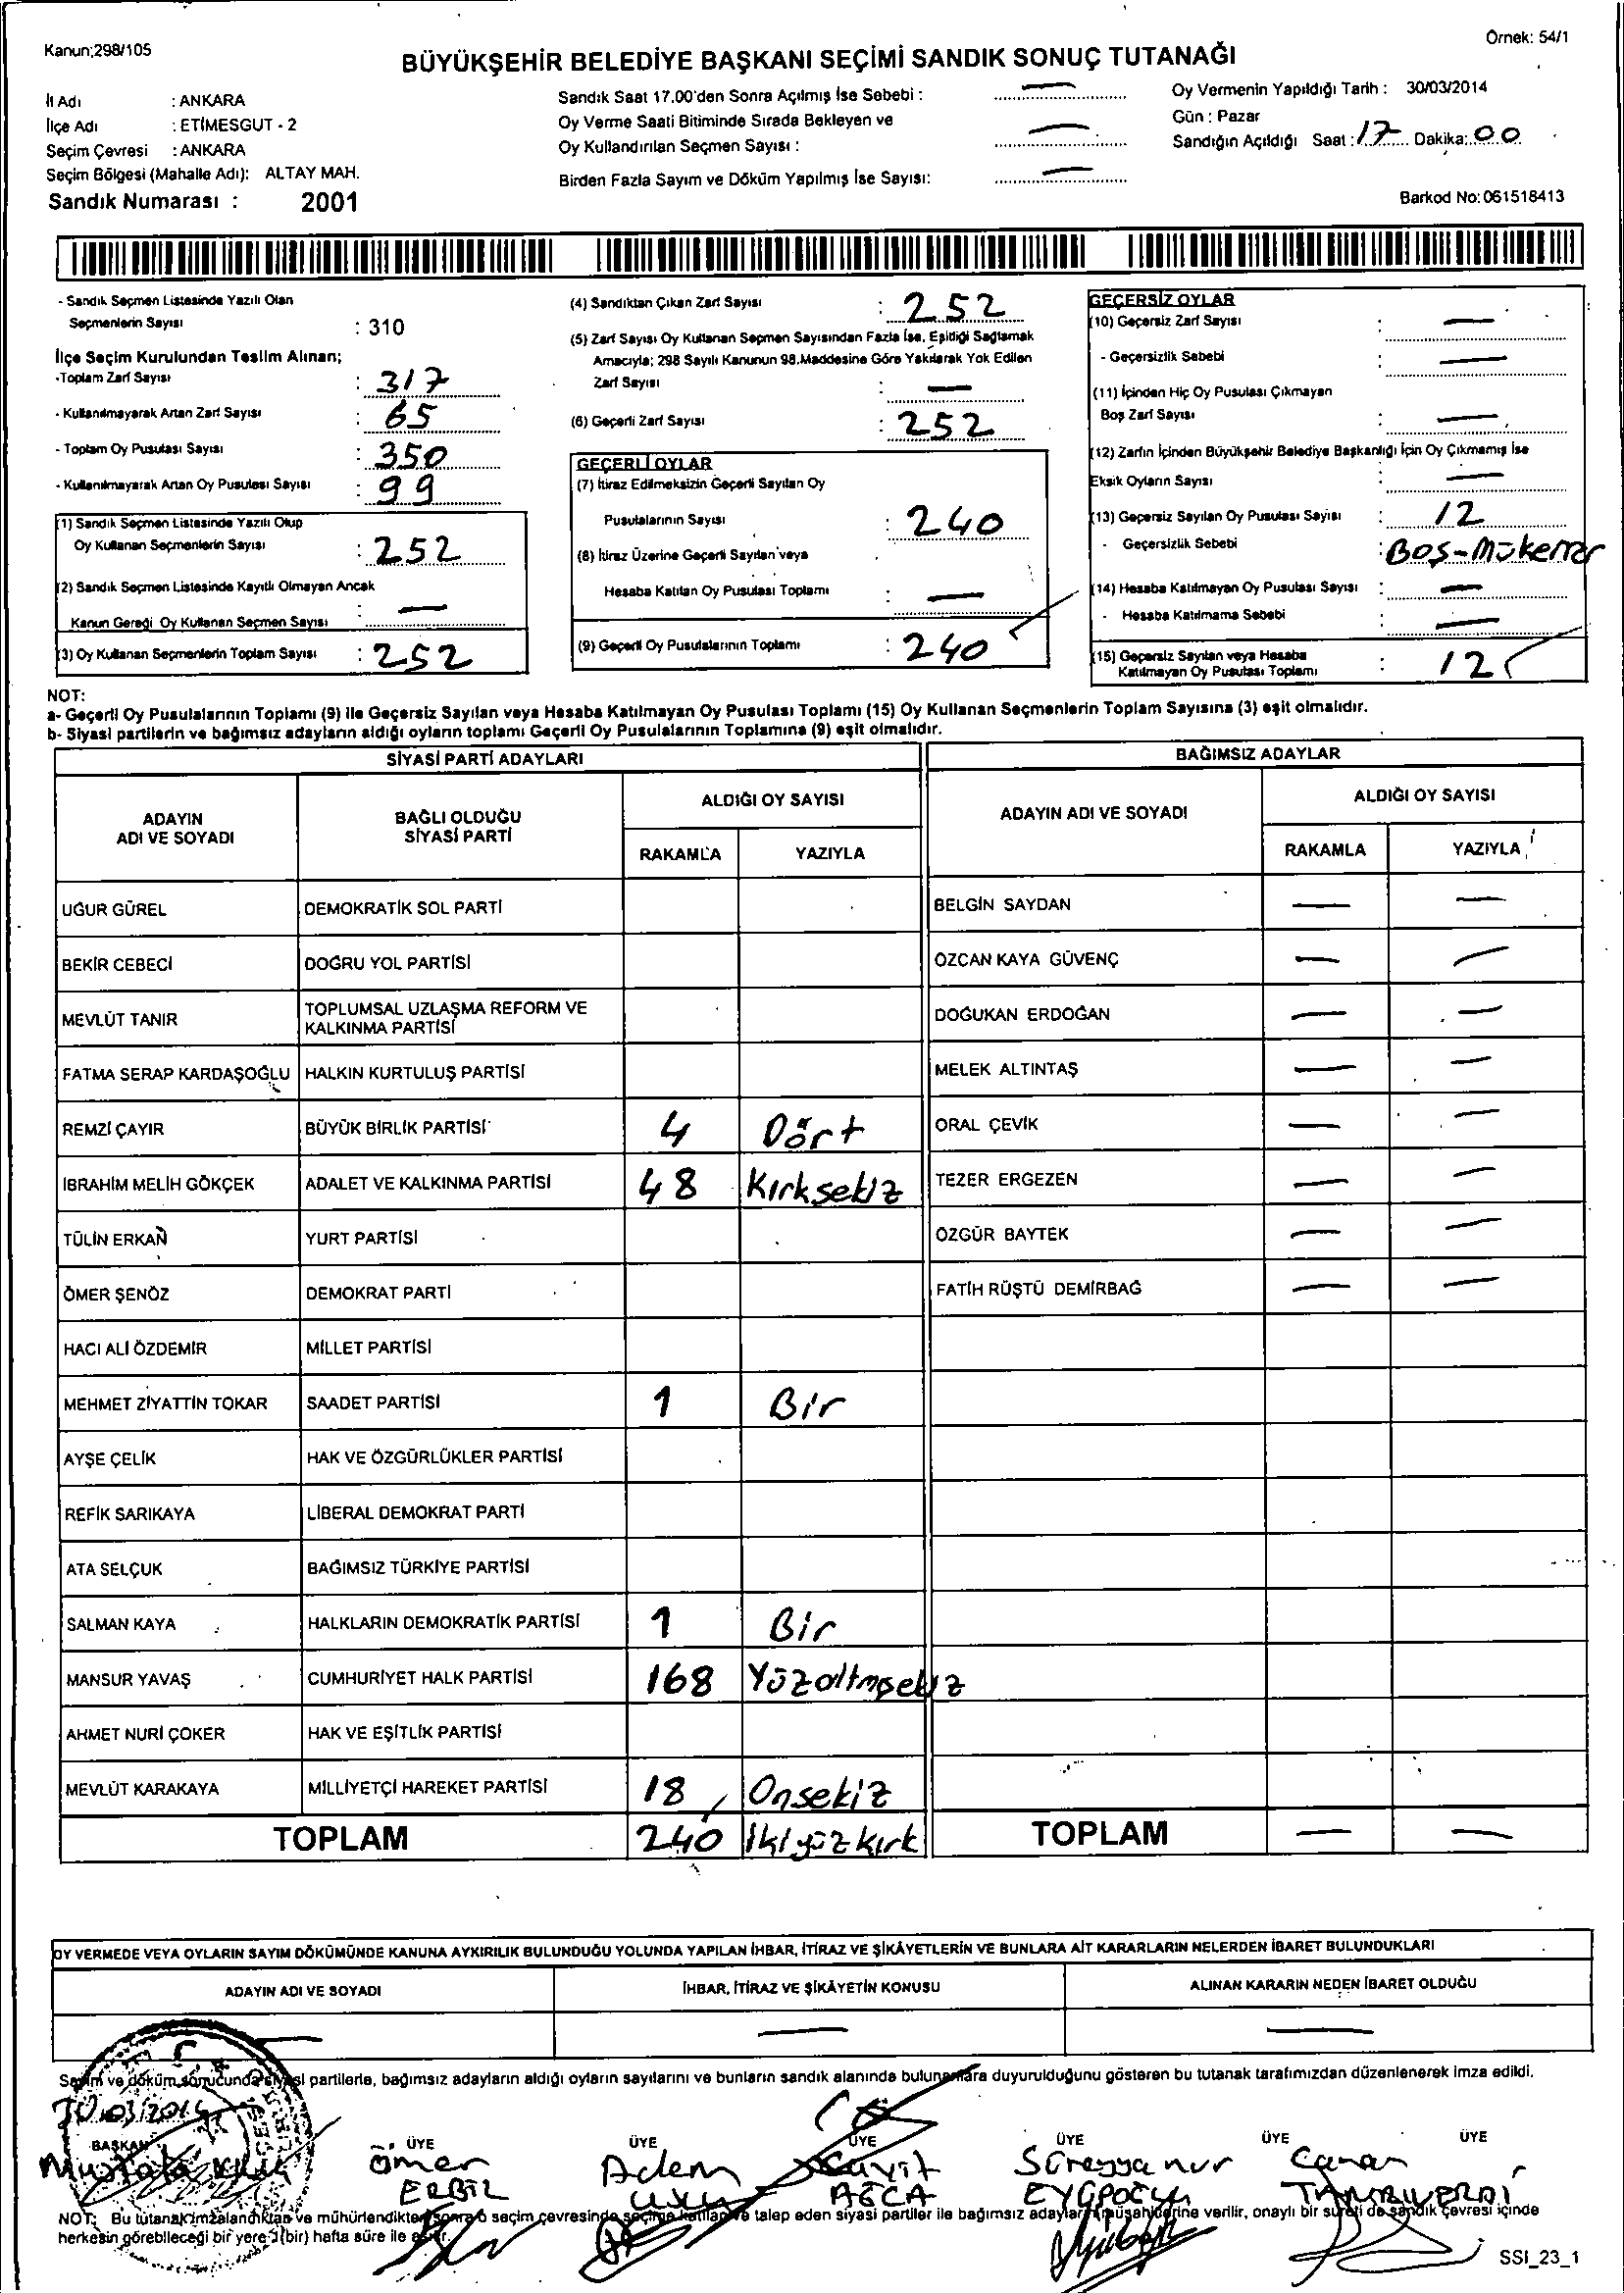 Kanun;298/105
Örnek: 54/1
BÜYÜKŞEHİR BELEDİYE BAŞKANI SEÇİMİ SANDIK SONUÇ TUTANAĞI
İl Adı : ANKARA
İlçe Adı : ETİMESGUT - 2
Seçim Çevresi : ANKARA
Seçim Bölgesi (Mahalle Adı): ALTAY MAH.
Sandık Numarası : 2001
Sandık Saat 17.00'den Sonra Açılmış İse Sebebi : —
Oy Verme Saati Bitiminde Sırada Bekleyen ve
Oy Kullandırılan Seçmen Sayısı : —
Birden Fazla Sayım ve Döküm Yapılmış İse Sayısı: —
Oy Vermenin Yapıldığı Tarih : 30/03/2014
Gün : Pazar
Sandığın Açıldığı Saat : 17 Dakika: 00
Barkod No: 061518413
- Sandık Seçmen Listesinde Yazılı Olan
Seçmenlerin Sayısı : 310
İlçe Seçim Kurulundan Teslim Alınan;
-Toplam Zarf Sayısı : 317
- Kullanılmayarak Artan Zarf Sayısı : 65
- Toplam Oy Pusulası Sayısı : 350
- Kullanılmayarak Artan Oy Pusulası Sayısı : 99
(1) Sandık Seçmen Listesinde Yazılı Olup
Oy Kullanan Seçmenlerin Sayısı : 252
(2) Sandık Seçmen Listesinde Kayıtlı Olmayan Ancak
Kanun Gereği Oy Kullanan Seçmen Sayısı : —
(3) Oy Kullanan Seçmenlerin Toplam Sayısı : 252
(4) Sandıktan Çıkan Zarf Sayısı : 252
(5) Zarf Sayısı Oy Kullanan Seçmen Sayısından Fazla İse, Eşitliği Sağlamak
Amacıyla; 298 Sayılı Kanunun 98.Maddesine Göre Yakılarak Yok Edilen
Zarf Sayısı : —
(6) Geçerli Zarf Sayısı : 252
GEÇERLİ OYLAR
(7) İtiraz Edilmeksizin Geçerli Sayılan Oy
Pusulalarının Sayısı : 240
(8) İtiraz Üzerine Geçerli Sayılan veya
Hesaba Katılan Oy Pusulası Toplamı : —
(9) Geçerli Oy Pusulalarının Toplamı : 240
GEÇERSİZ OYLAR
(10) Geçersiz Zarf Sayısı : —
- Geçersizlik Sebebi : —
(11) İçinden Hiç Oy Pusulası Çıkmayan
Boş Zarf Sayısı : —
(12) Zarfın İçinden Büyükşehir Belediye Başkanlığı İçin Oy Çıkmamış İse
Eksik Oyların Sayısı : —
(13) Geçersiz Sayılan Oy Pusulası Sayısı : 12
- Geçersizlik Sebebi : Boş-Mükerrer
(14) Hesaba Katılmayan Oy Pusulası Sayısı : —
- Hesaba Katılmama Sebebi : —
(15) Geçersiz Sayılan veya Hesaba
Katılmayan Oy Pusulası Toplamı : 12
NOT:
a- Geçerli Oy Pusulalarının Toplamı (9) ile Geçersiz Sayılan veya Hesaba Katılmayan Oy Pusulası Toplamı (15) Oy Kullanan Seçmenlerin Toplam Sayısına (3) eşit olmalıdır.
b- Siyasi partilerin ve bağımsız adayların aldığı oyların toplamı Geçerli Oy Pusulalarının Toplamına (9) eşit olmalıdır.
SİYASİ PARTİ ADAYLARI
ADAYIN
ADI VE SOYADI
BAĞLI OLDUĞU
SİYASİ PARTİ
ALDIĞI OY SAYISI
RAKAMLA YAZIYLA
UĞUR GÜREL DEMOKRATİK SOL PARTİ
BEKİR CEBECİ DOĞRU YOL PARTİSİ
MEVLÜT TANIR TOPLUMSAL UZLAŞMA REFORM VE
KALKINMA PARTİSİ
FATMA SERAP KARDAŞOĞLU HALKIN KURTULUŞ PARTİSİ
REMZİ ÇAYIR BÜYÜK BİRLİK PARTİSİ 4 Dört
İBRAHİM MELİH GÖKÇEK ADALET VE KALKINMA PARTİSİ 48 Kırksekiz
TÜLİN ERKAN YURT PARTİSİ
ÖMER ŞENÖZ DEMOKRAT PARTİ
HACI ALİ ÖZDEMİR MİLLET PARTİSİ
MEHMET ZİYATTİN TOKAR SAADET PARTİSİ 1 Bir
AYŞE ÇELİK HAK VE ÖZGÜRLÜKLER PARTİSİ
REFİK SARIKAYA LİBERAL DEMOKRAT PARTİ
ATA SELÇUK BAĞIMSIZ TÜRKİYE PARTİSİ
SALMAN KAYA HALKLARIN DEMOKRATİK PARTİSİ 1 Bir
MANSUR YAVAŞ CUMHURİYET HALK PARTİSİ 168 Yüzaltmışsekiz
AHMET NURİ ÇOKER HAK VE EŞİTLİK PARTİSİ
MEVLÜT KARAKAYA MİLLİYETÇİ HAREKET PARTİSİ 18 Onsekiz
TOPLAM 240 İkiyüzkırk
BAĞIMSIZ ADAYLAR
ADAYIN ADI VE SOYADI
ALDIĞI OY SAYISI
RAKAMLA YAZIYLA
BELGİN SAYDAN — —
ÖZCAN KAYA GÜVENÇ — —
DOĞUKAN ERDOĞAN — —
MELEK ALTINTAŞ — —
ORAL ÇEVİK — —
TEZER ERGEZEN — —
ÖZGÜR BAYTEK — —
FATİH RÜŞTÜ DEMİRBAĞ — —
TOPLAM — —
OY VERMEDE VEYA OYLARIN SAYIM DÖKÜMÜNDE KANUNA AYKIRILIK BULUNDUĞU YOLUNDA YAPILAN İHBAR, İTİRAZ VE ŞİKÂYETLERİN VE BUNLARA AİT KARARLARIN NELERDEN İBARET BULUNDUKLARI
ADAYIN ADI VE SOYADI İHBAR, İTİRAZ VE ŞİKÂYETİN KONUSU ALINAN KARARIN NEDEN İBARET OLDUĞU
— — —
Sayım ve döküm sonucunda siyasi partilerle, bağımsız adayların aldığı oyların sayılarını ve bunların sandık alanında bulunanlara duyurulduğunu gösteren bu tutanak tarafımızdan düzenlenerek imza edildi.
30/03/2014
BAŞKAN ÜYE ÜYE ÜYE ÜYE ÜYE ÜYE
Mustafa Ömer Adem Cavit Süreyya nur Canan
ERBİL AĞCA EYÜPOĞLU TANRIVERDİ
NOT: Bu tutanak imzalandıktan ve mühürlendikten sonra o seçim çevresinde seçime katılan ve talep eden siyasi partiler ile bağımsız adayların müşahitlerine verilir, onaylı bir sureti de sandık çevresi içinde
herkesin görebileceği bir yere 1(bir) hafta süre ile asılır.
SSI_23_1